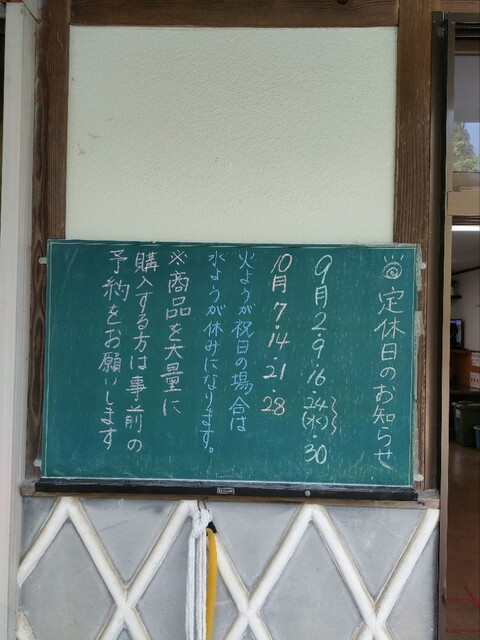 ◎定休日のお知らせ
9月2・9・16 24(水)・30
10月7・14・21・28
火ようが祝日の場合は
水ようが休みになります。
※商品を大量に
購入する方は事前の
予約をお願いします